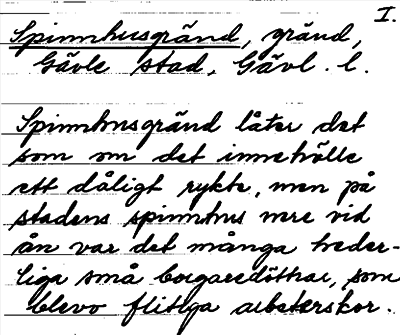 I.
Spinnhusgränd, gränd,
Gävle stad, Gävl. l.
Spinnhusgränd låter det
som om det innehölle
ett dåligt rykte, men på
stadens spinnhus nere vid
ån var det många heder-
liga små borgaredöttrar, som
blevo flitiga arbeterskor.